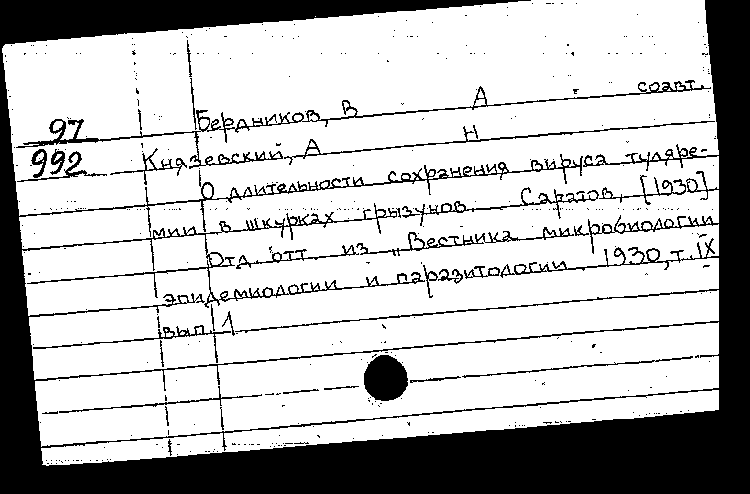 Бердников, В А соавт.
97
992
Князевский, А Н
О длительности сохранения вируса туляре-
мии в шкурках грызунов. Саратов, [1930]
Отд. отт. из „Вестника микробиологии
эпидемиологии и паразитологии. 1930, т. IX
вып. 1